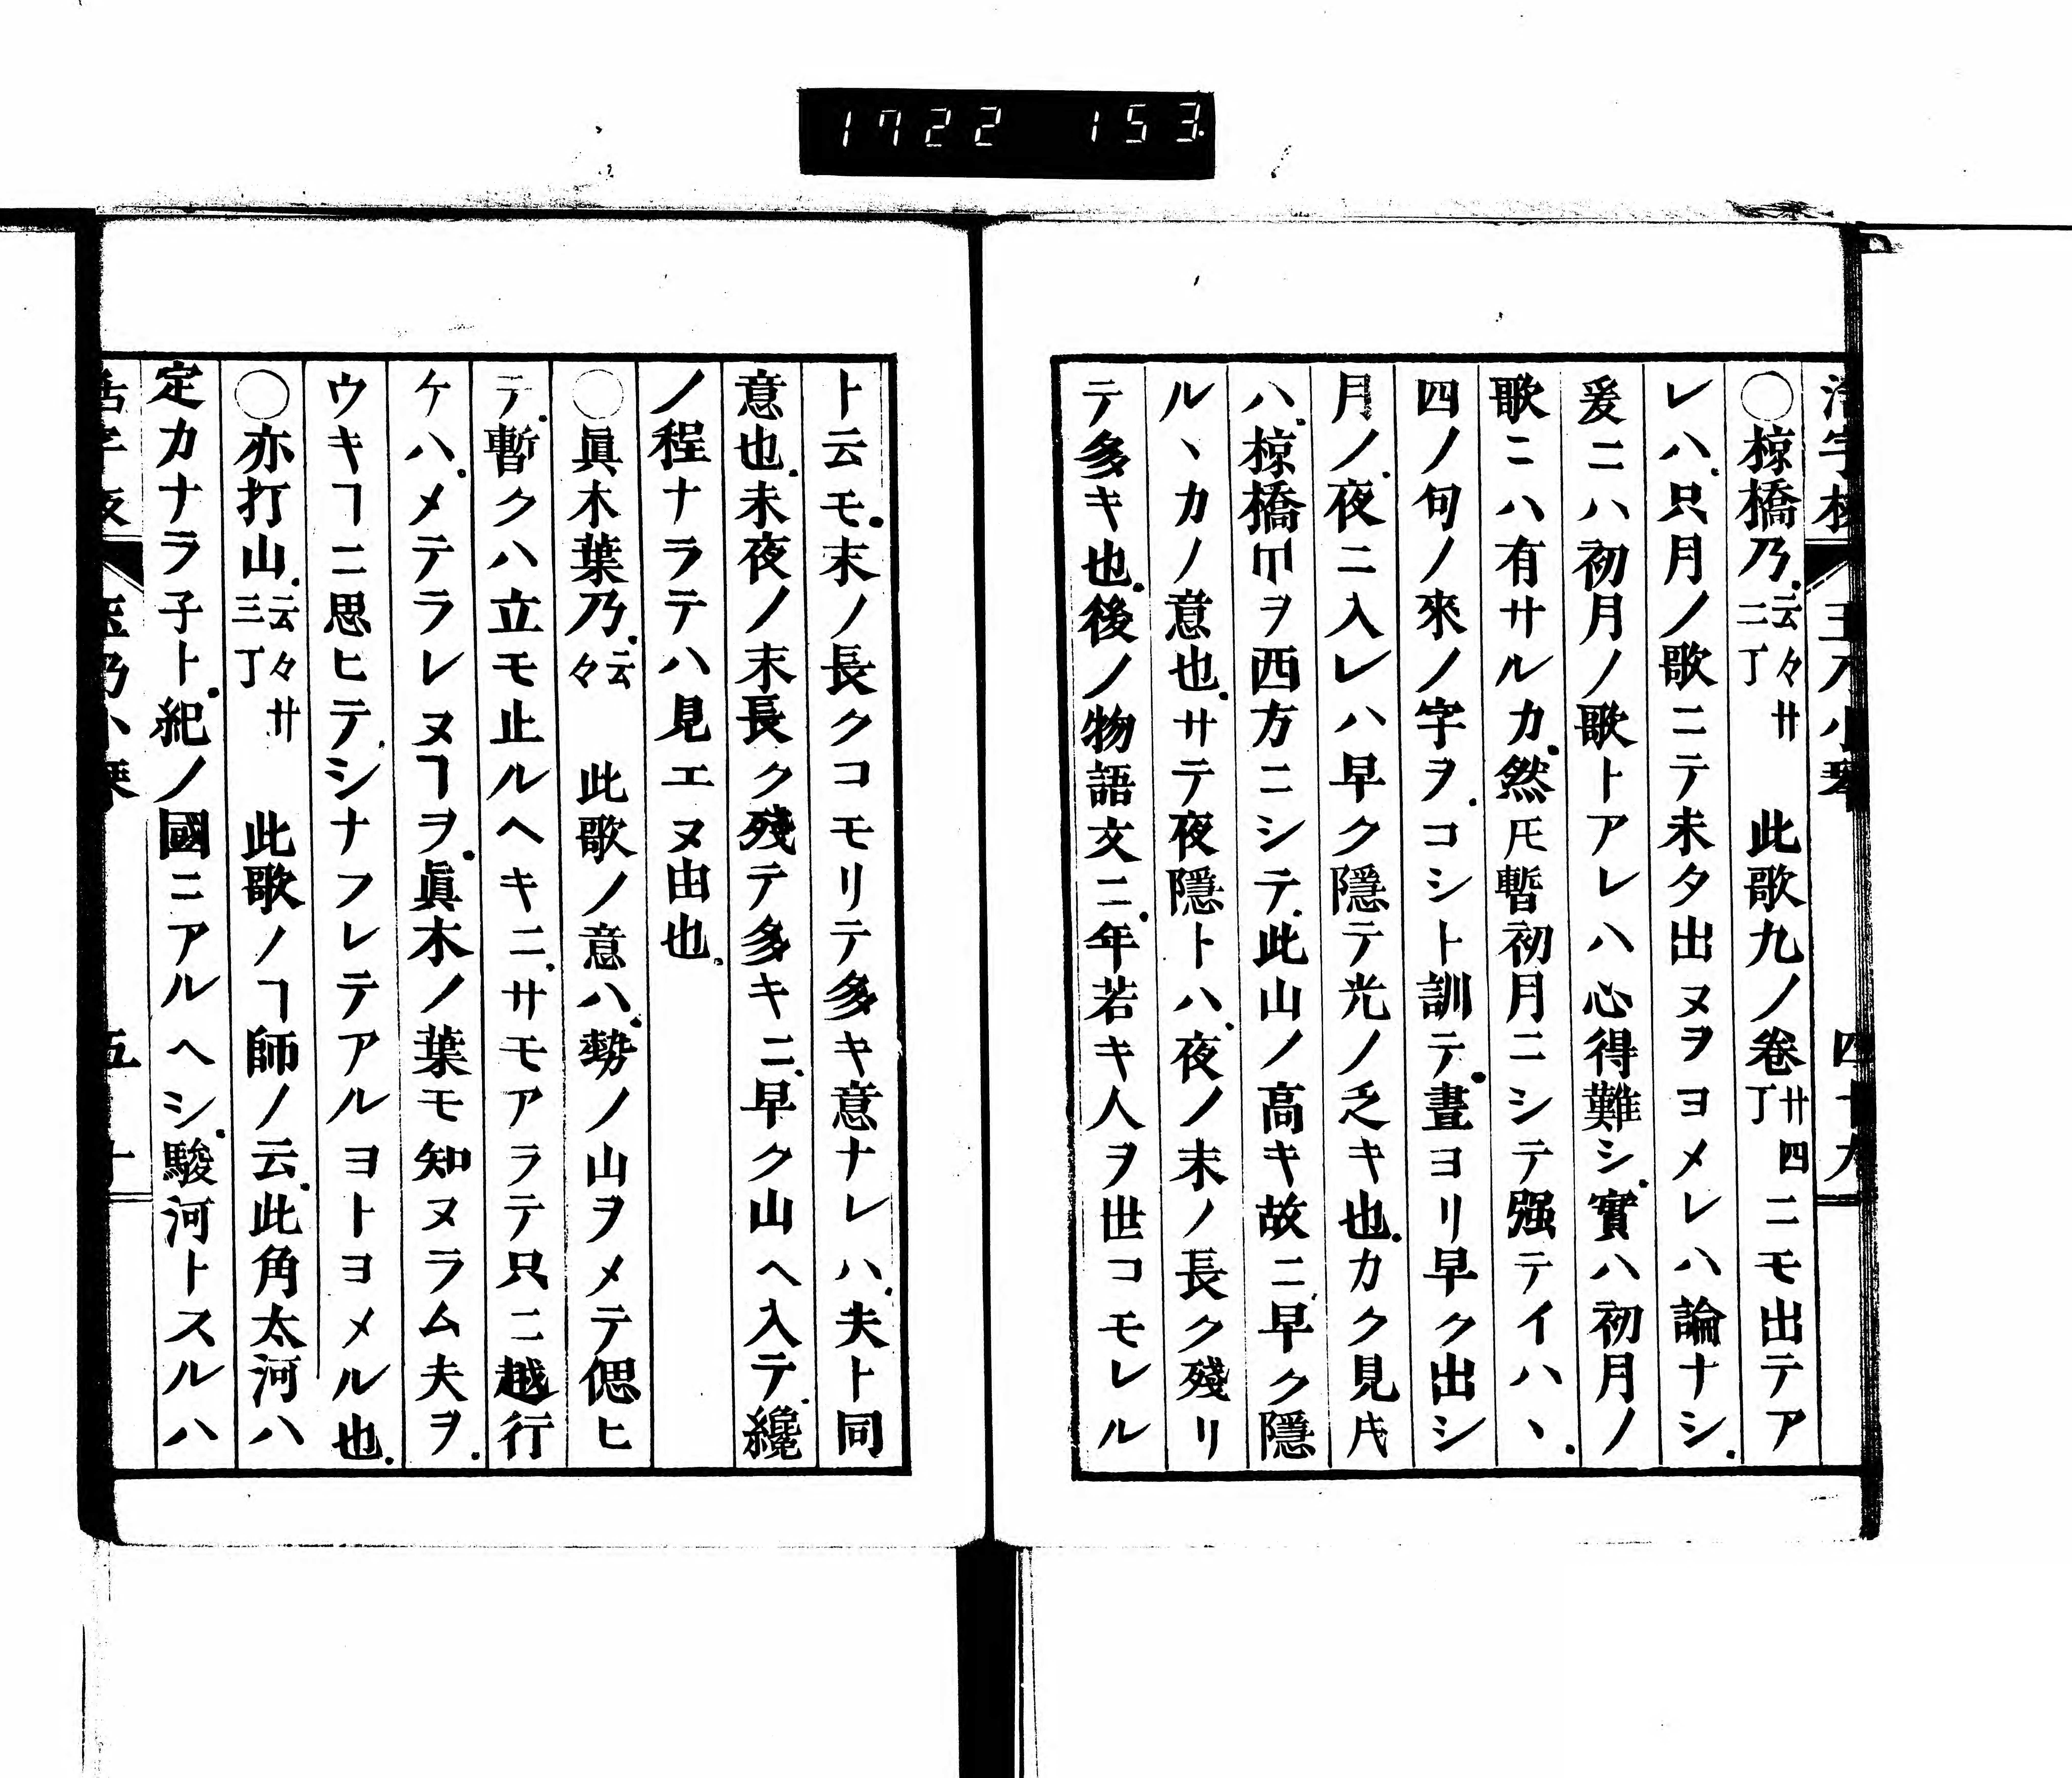 1722 153
○椋橋乃云々廿二丁 此歌九ノ卷廿四丁ニモ出テア
レハ只月ノ歌ニテ未タ出ヌヲヨメレハ論ナシ
爰ニハ初月ノ歌トアレハ心得難シ實ハ初月ノ
歌ニハ有サルカ然𪜈暫初月ニシテ强テイハヽ
四ノ句ノ來ノ字ヲコシト訓テ晝ヨリ早ク出シ
月ノ夜ニ入レハ早ク隱テ光ノ乏キ也カク見
ハ椋橋ヲ西方ニシテ此山ノ高キ故ニ早ク隱
ルヽカノ意也サテ夜隱トハ夜ノ末ノ長ク殘リ
テ多キ也後ノ物語文ニ年若キ人ヲ世コモレル
ト云モ末ノ長クコモリテ多キ意ナレハ夫ト同
意也未夜ノ末長ク殘テ多キニ早ク山ヘ入テ纔
ノ程ナラテハ見エヌ由也
○眞木葉乃云々 此歌ノ意ハ勢ノ山ヲメテ偲ヒ
テ暫クハ立モ止ルヘキニサモアラテ只ニ越行
ケハメテラレヌヿヲ眞木ノ葉モ知ヌラム夫ヲ
ウキヿニ思ヒテシナフレテアルヨトヨメル也
○亦打山云々廿三丁 此歌ノヿ師ノ云此角太河ハ
定カナラ子ト紀ノ國ニアルヘシ駿河トスルハ